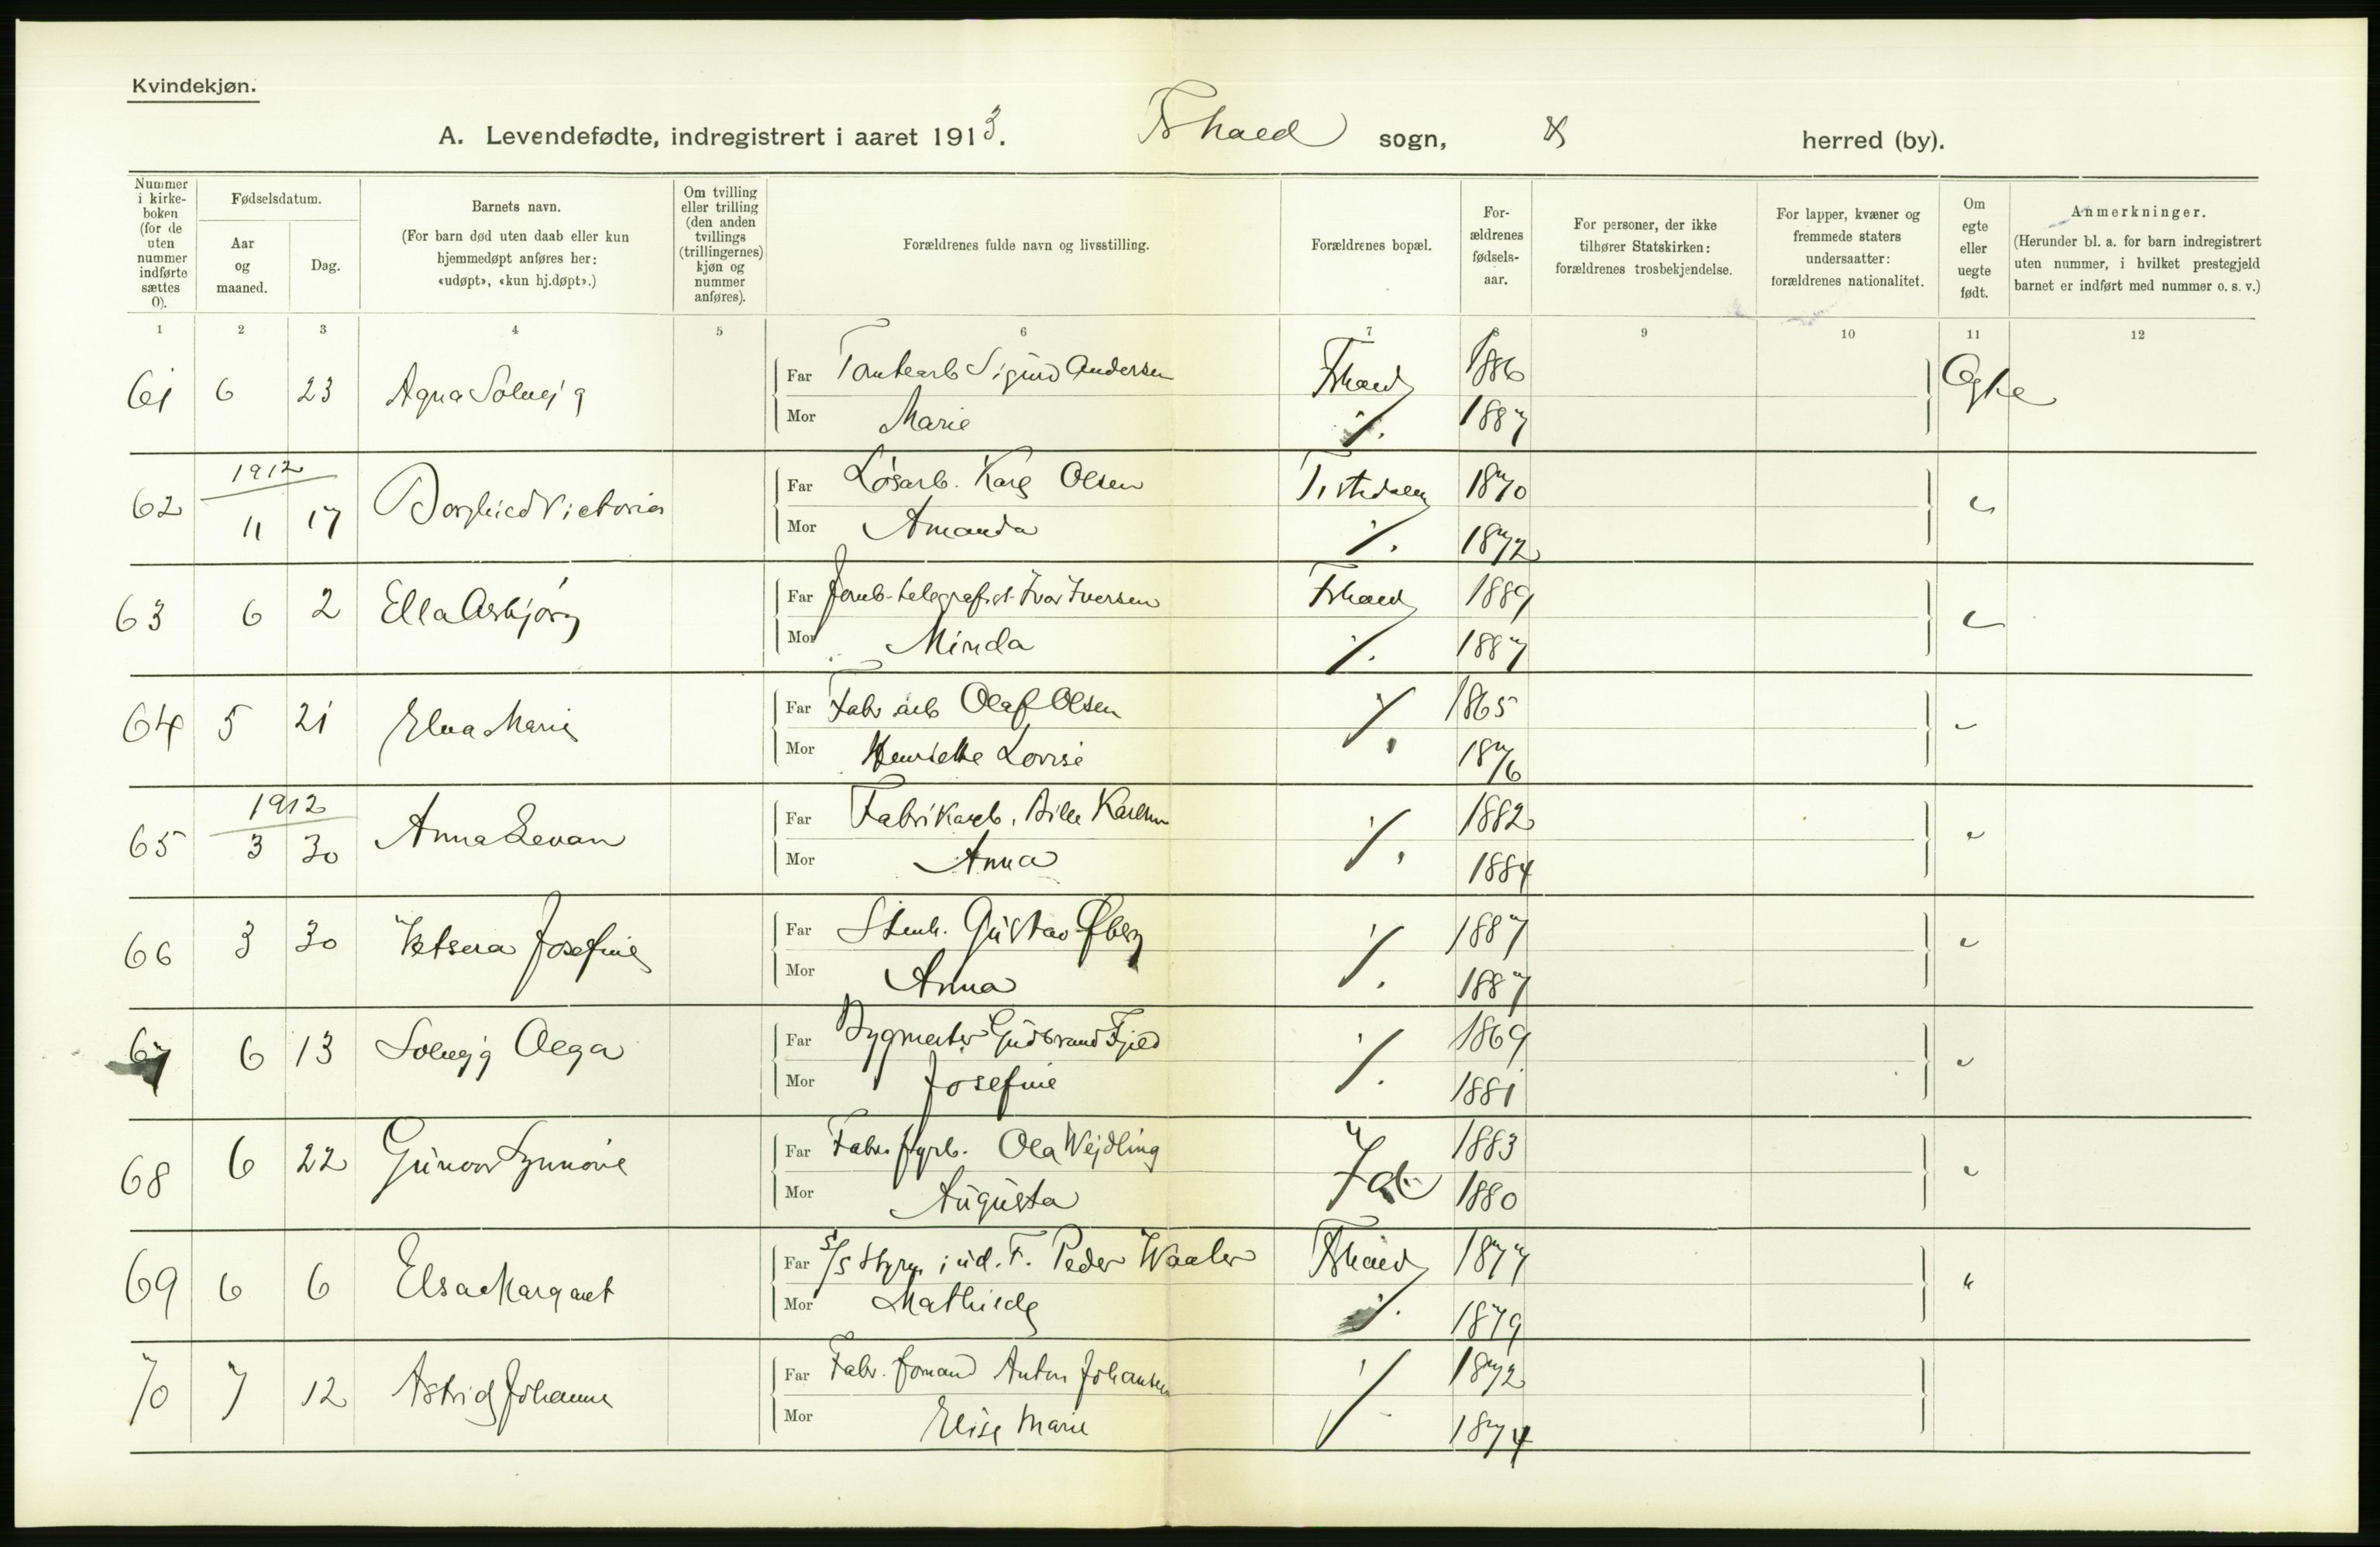 Kvindekjøn.
A. Levendefødte, indregistrert i aaret 1913. Fshald sogn, herred (by).
Nummer i kirke-boken (for de uten nummer indførte sættes 0).
Fødselsdatum.
Aar og maaned.
Dag.
Barnets navn.
(For barn død uten daab eller kun hjemmedøpt anføres her: «udøpt», «kun hj.døpt».)
Om tvilling eller trilling (den anden tvillings (trillingernes) kjøn og nummer anføres).
Forældrenes fulde navn og livsstilling.
Forældrenes bopæl.
For-ældrenes fødsels-aar.
For personer, der ikke tilhører Statskirken: forældrenes trosbekjendelse.
For lapper, kvæner og fremmede staters undersaatter: forældrenes nationalitet.
Om egte eller uegte født.
Anmerkninger.
(Herunder bl. a. for barn indregistrert uten nummer, i hvilket prestegjeld barnet er indført med nummer o. s. v.)
1 2 3 4 5 6 7 8 9 10 11 12
61 6 23 Agna Solveig Far Tomtearb Sigurd Andersen Fshald 1886 Egte
Mor Marie ⁒ 1887
1912
62 11 17 Borghild Victoria Far Løsarb. Karl Olsen Tistedalen 1870 "
Mor Amanda ⁒ 1872
63 6 2 Ella Asbjørg Far Jernb-telegrafist Ivar Iversen Fshald 1889 "
Mor Minda ⁒ 1887
64 5 21 Elna Marie Far Fabr arb Olaf Olsen ⁒ 1865 "
Mor Henriette Lovise 1876
1912
65 3 30 Anna Levan Far Fabrikarb. Karlsen ⁒ 1882 "
Mor Anna 1884
66 3 30 Josefine Far Stenh. Gustav Øberg ⁒ 1887 "
Mor Anna 1887
67 6 13 Solveig Olga Far Bygmester Gudbrand Fjeld ⁒ 1869 "
Mor Josefine 1881
68 6 22 Gunvor Synnøve Far Fabr. fyrb. Ola Wejdling Id 1883 "
Mor Augusta 1880
69 6 6 Elsa Margaret Far S/S Styrm. i ud. F. Peder Waaler Fshald 1877 "
Mor Mathilde ⁒ 1879
70 7 12 Astrid Johanne Far Fabr. formand Anton Johansen ⁒ 1872
Mor Elise Marie 1874